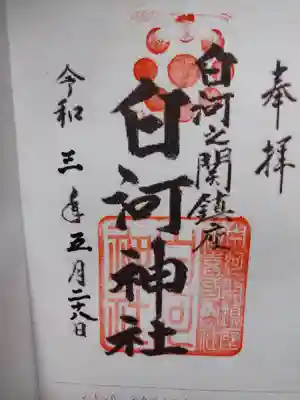 奉拝
白河之関鎮座
白河神社
令和三年五月二八日